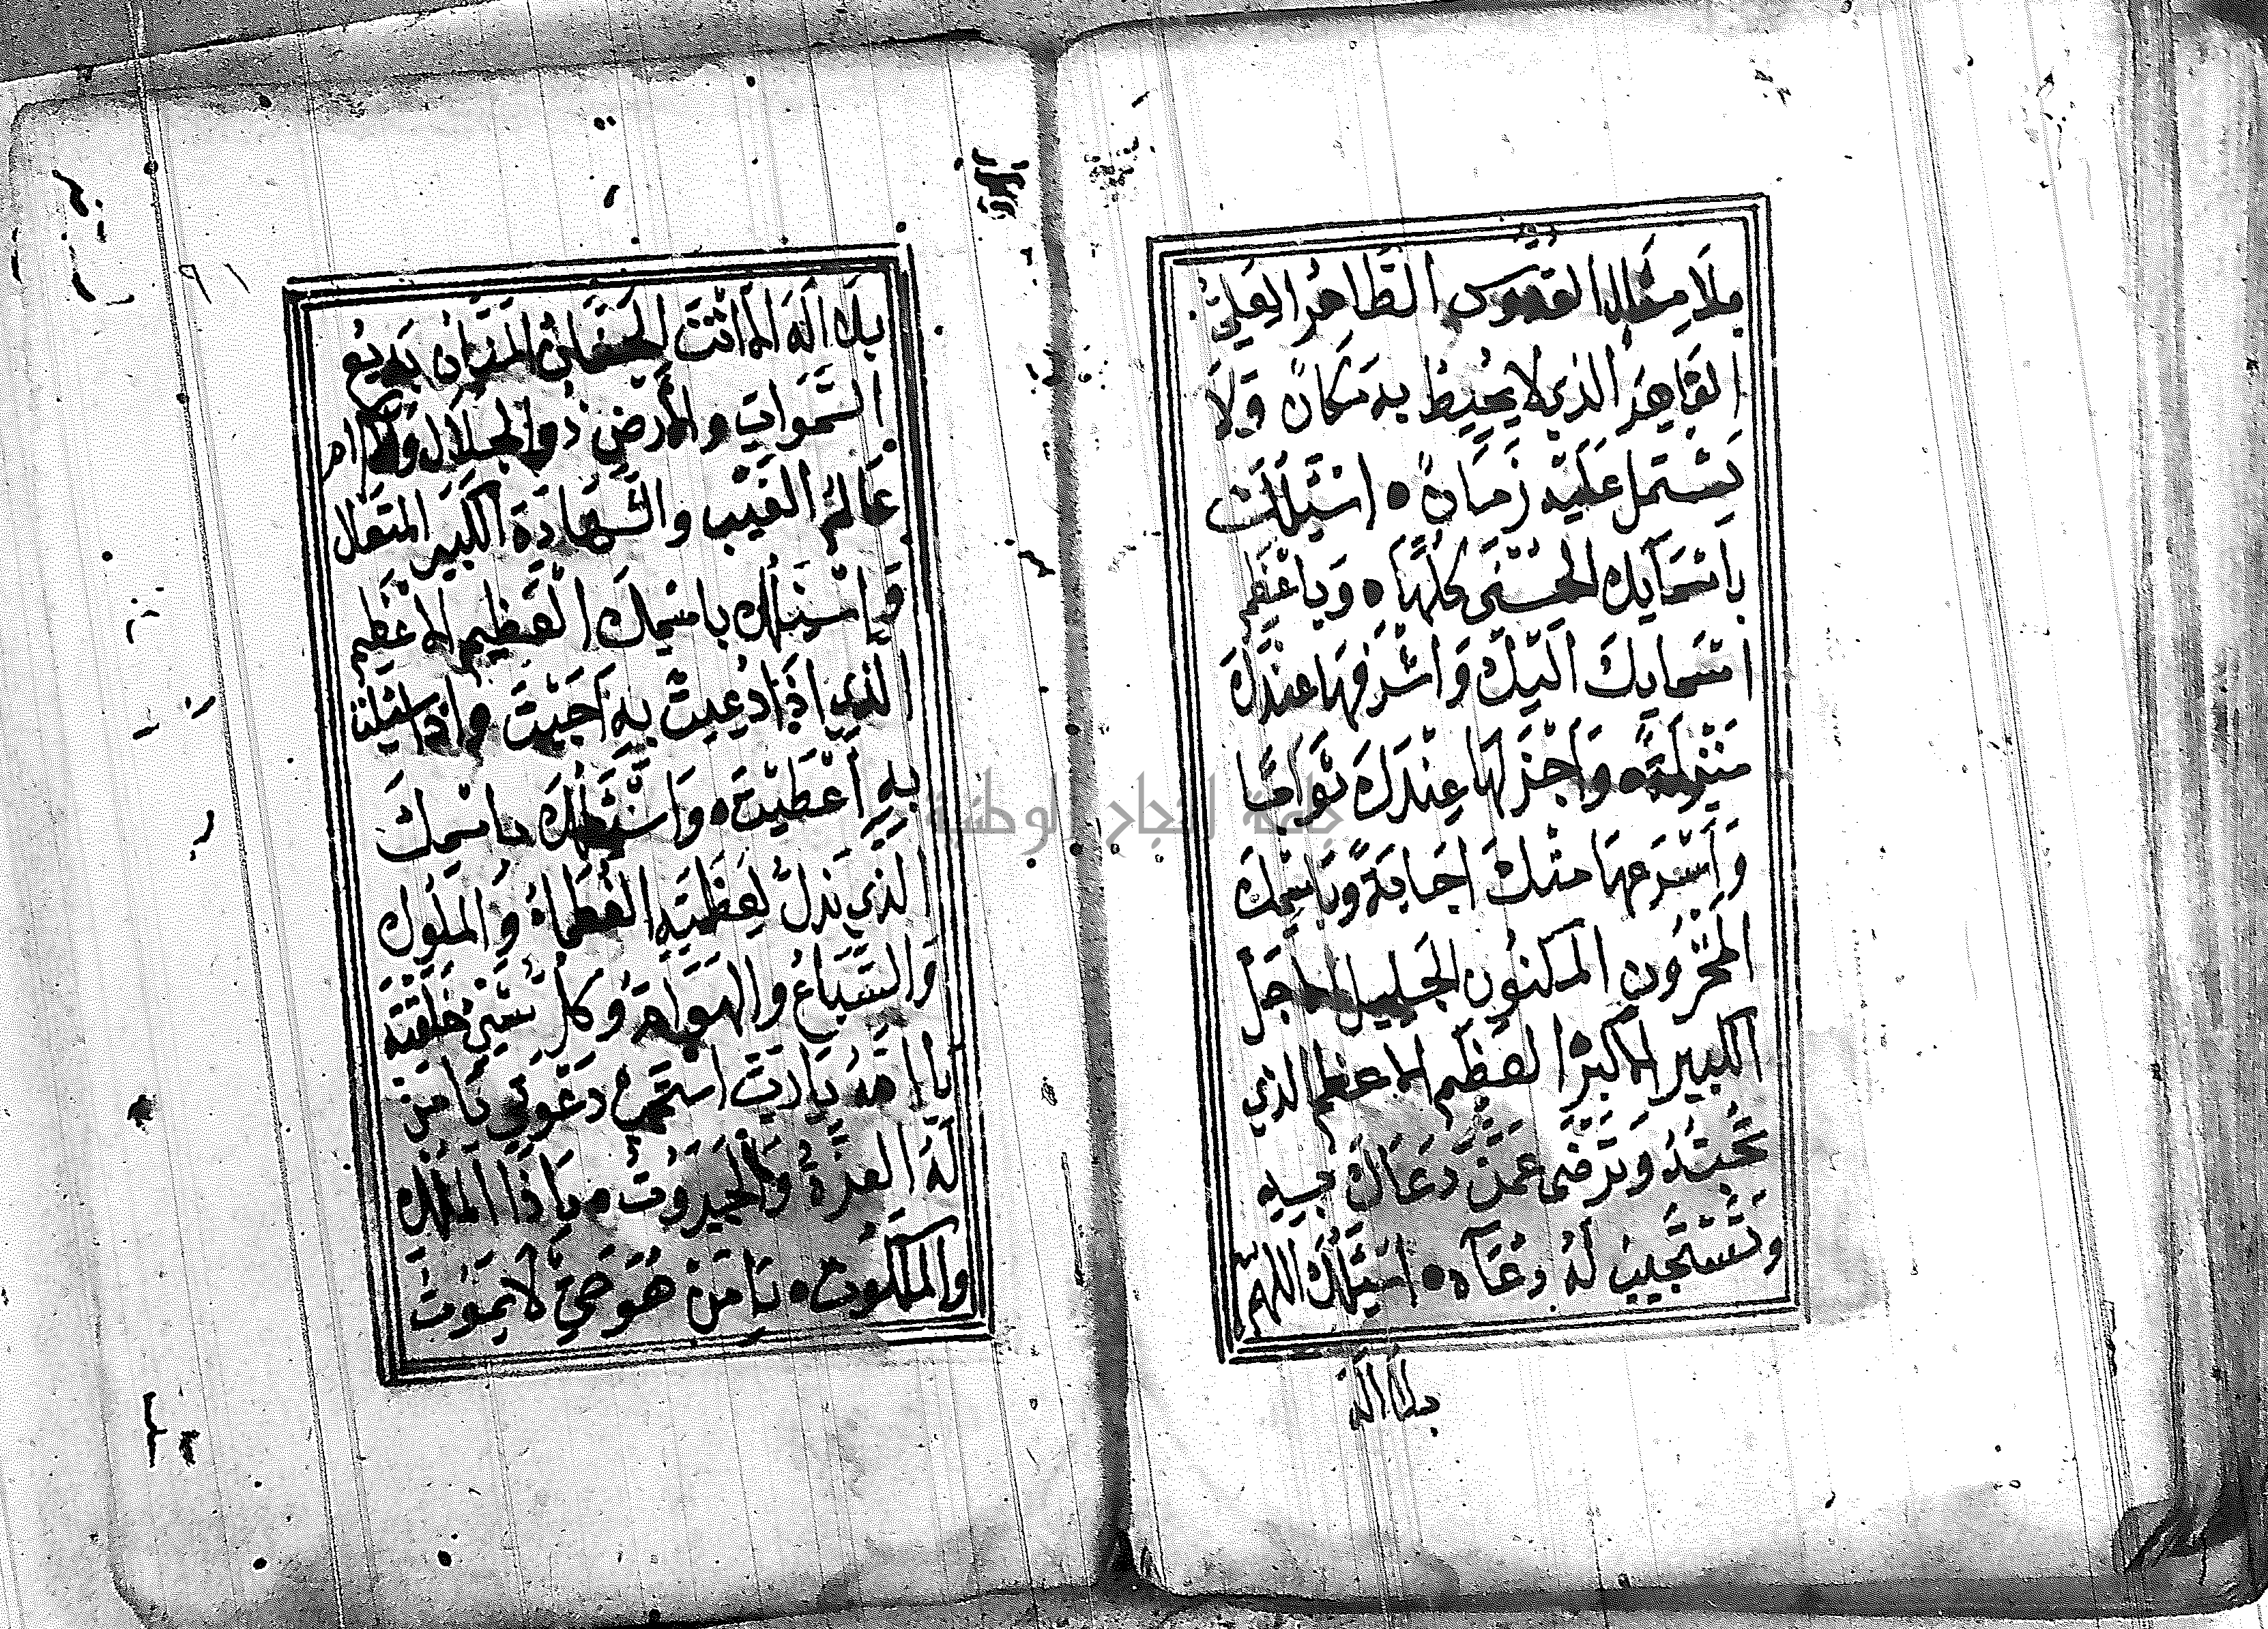 بِلَا مِثَالٍ القدوس الطَّاهِرُ العَلِيُّ
القَاهِرُ الذي لا يُحِيطُ به مَكَانٌ وَلَا
يَشْتمل عَلَيْه زَمَانٌ ه اسْئَلُكَ
باسْمَآيِكَ الحُسْنَى كُلِّهَا ه وَبِاعْظَمِ
اسْمَايِكَ الَيْكَ وَاشْرَفِهَا عِنْدَكَ
مَنْزِلَةً ه وَأَجْزَلِهَا عِنْدَكَ ثَوَابًا
وَأَسْرَعِهَا مِنْكَ اجَابَةً وَبِاسْمِكَ
المَخْزُونِ المَكنُونِ الجَلِيلِ الاجَلِّ
الكَبيرِ الاكْبَرِ العَظِيمِ الاعظمِ الذي
تُحِبُّهُ وَتَرْضَى عَمَّنْ دَعَاكَ بِهِ
وَتَسْتَجِيبُ لَهُ دُعَآءَهُ ه اسْئَلُكَ اللهُمَّ
بلا اله
بلَا الَهَ الا انْتَ الحَنَّانُ المَنَّانُ بَدِيعُ
السَّمَوَاتِ والأَرْضِ ذُو الجَلَالِ وَالاكْرَام
عَالمُ الغَيْبِ والشَّهَادَةِ الكَبيرُ المتَعَال
وَاسْئَلُكَ باسْمِكَ العَظِيمِ الاعْظَمِ
الَّذِي اذَا دُعِيتَ بِهِ اَجَبْتَ واذا سُئِلْتَ
بِهِ اَعْطَيْتَ ه وَاسْئَلُكَ باسْمِكَ
الذي يَذِلُّ لِعَظَمَتِهِ العُظَمَاءُ وَالمُلُوك
وَالسِّبَاعُ والهَوَامُّ وَكُلُّ شَيْءٍ خَلَقْتَهُ
يا اللهُ يَا رَبِّ اسْتَجِبْ دَعْوَتِي يَا مَنْ
لَهُ العِزَّةُ وَالجَبَرُوتُ ه يَا ذَا المُلْكِ
وَالمَلَكُوتِ ه يَا مَنْ هُوَ حَيٌّ لَا يَمُوتُ
جامعة النجاح الوطنية